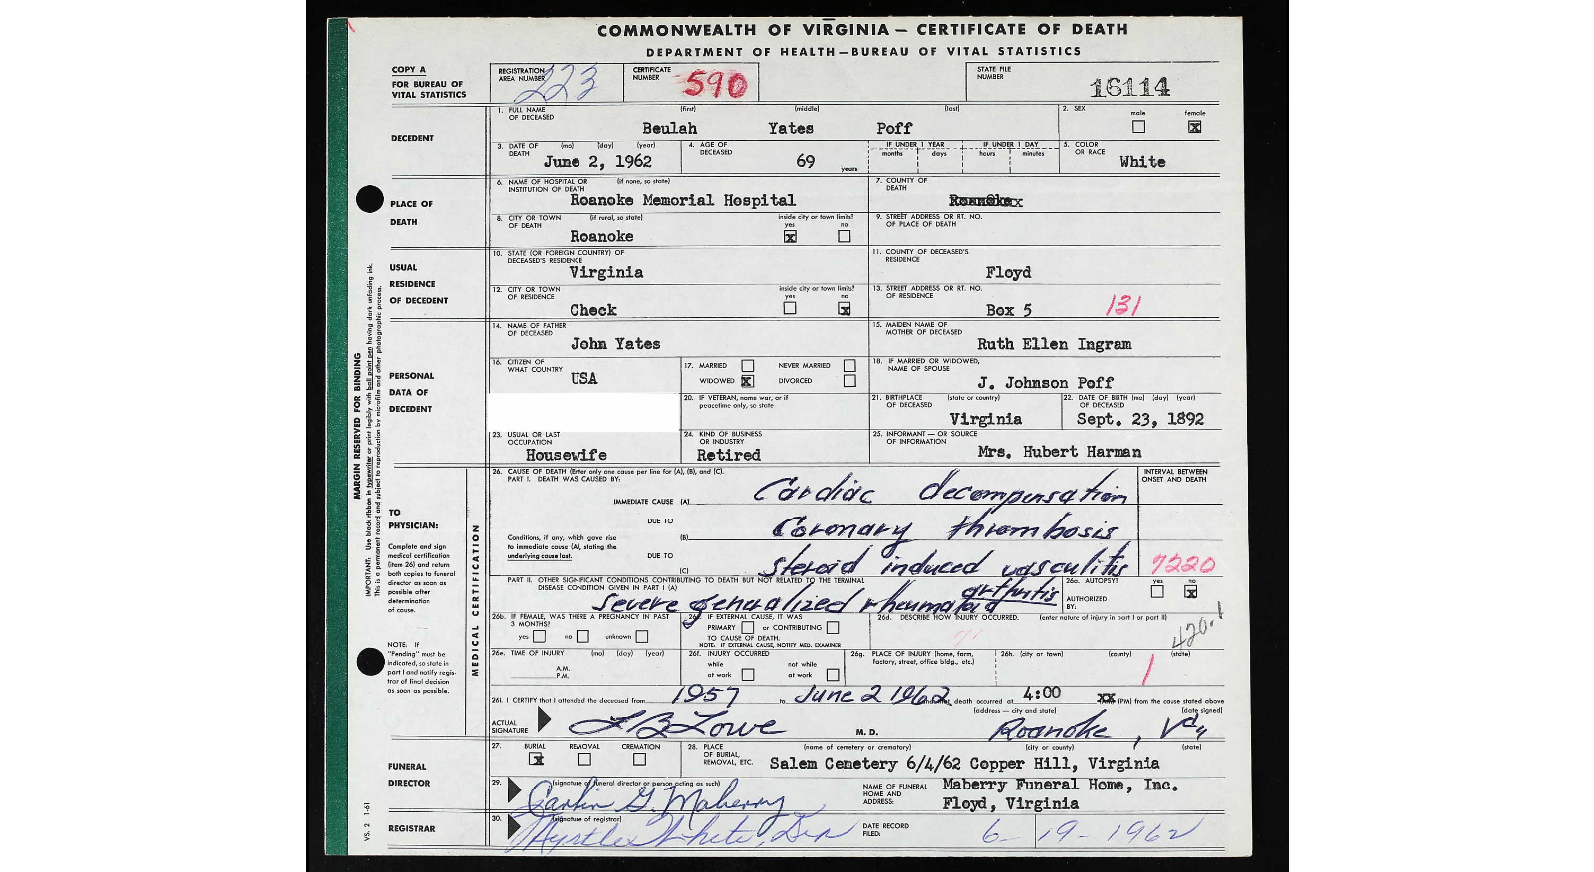 COMMONWEALTH OF VIRGINIA — CERTIFICATE OF DEATH
DEPARTMENT OF HEALTH—BUREAU OF VITAL STATISTICS
COPY A
FOR BUREAU OF
VITAL STATISTICS
REGISTRATION
AREA NUMBER 223
CERTIFICATE
NUMBER 590
STATE FILE
NUMBER 16114
DECEDENT
1. FULL NAME OF DECEASED (first) (middle) (last)
Beulah Yates Poff
2. SEX
male female x
3. DATE OF DEATH (mo) (day) (year)
June 2, 1962
4. AGE OF DECEASED
69 years
IF UNDER 1 YEAR months days
IF UNDER 1 DAY hours minutes
5. COLOR OR RACE
White
PLACE OF
DEATH
6. NAME OF HOSPITAL OR INSTITUTION OF DEATH (if none, so state)
Roanoke Memorial Hospital
7. COUNTY OF DEATH
8. CITY OR TOWN OF DEATH (if rural, so state)
Roanoke
inside city or town limits?
yes x no
9. STREET ADDRESS OR RT. NO. OF PLACE OF DEATH
USUAL
RESIDENCE
OF DECEDENT
10. STATE (OR FOREIGN COUNTRY) OF DECEASED'S RESIDENCE
Virginia
11. COUNTY OF DECEASED'S RESIDENCE
Floyd
12. CITY OR TOWN OF RESIDENCE
Check
inside city or town limits?
yes no x
13. STREET ADDRESS OR RT. NO. OF RESIDENCE
Box 5 131
PERSONAL
DATA OF
DECEDENT
14. NAME OF FATHER OF DECEASED
John Yates
15. MAIDEN NAME OF MOTHER OF DECEASED
Ruth Ellen Ingram
16. CITIZEN OF WHAT COUNTRY
USA
17. MARRIED NEVER MARRIED
WIDOWED x DIVORCED
18. IF MARRIED OR WIDOWED, NAME OF SPOUSE
J. Johnson Poff
20. IF VETERAN, name war, or if peacetime only, so state
21. BIRTHPLACE OF DECEASED (state or country)
Virginia
22. DATE OF BIRTH (mo) (day) (year) OF DECEASED
Sept. 23, 1892
23. USUAL OR LAST OCCUPATION
Housewife
24. KIND OF BUSINESS OR INDUSTRY
Retired
25. INFORMANT — OR SOURCE OF INFORMATION
Mrs. Hubert Harman
MARGIN RESERVED FOR BINDING
IMPORTANT: Use black ribbon in typewriter or print legibly with ball point pen having dark unfading ink.
This is a permanent record and subject to reproduction by microfilm and other photographic process.
VS. 2 1-61
TO
PHYSICIAN:
Complete and sign
medical certification
(item 26) and return
both copies to funeral
director as soon as
possible after
determination
of cause.
NOTE: If
"Pending" must be
indicated, so state in
part I and notify regis-
trar of final decision
as soon as possible.
MEDICAL CERTIFICATION
26. CAUSE OF DEATH (Enter only one cause per line for (A), (B), and (C).
PART I. DEATH WAS CAUSED BY:
INTERVAL BETWEEN ONSET AND DEATH
IMMEDIATE CAUSE (A) Cardiac decompensation
DUE TO
Conditions, if any, which gave rise
to immediate cause (A), stating the
underlying cause last.
(B) Coronary thrombosis
DUE TO
(C) steroid induced vasculitis 7220
PART II. OTHER SIGNIFICANT CONDITIONS CONTRIBUTING TO DEATH BUT NOT RELATED TO THE TERMINAL
DISEASE CONDITION GIVEN IN PART I (A)
Severe generalized rheumatoid arthritis
26a. AUTOPSY? yes no x
AUTHORIZED BY:
26b. IF FEMALE, WAS THERE A PREGNANCY IN PAST 3 MONTHS?
yes no unknown
26c. IF EXTERNAL CAUSE, IT WAS
PRIMARY or CONTRIBUTING
TO CAUSE OF DEATH.
NOTE: IF EXTERNAL CAUSE, NOTIFY MED. EXAMINER
26d. DESCRIBE HOW INJURY OCCURRED. (enter nature of injury in part I or part II)
420.1
26e. TIME OF INJURY (mo) (day) (year)
A.M.
P.M.
26f. INJURY OCCURRED
while at work not while at work
26g. PLACE OF INJURY (home, farm, factory, street, office bldg., etc.)
26h. (city or town) (county) (state)
26i. I CERTIFY that I attended the deceased from 1957 to June 2 1962, and that death occurred at 4:00 (PM) from the cause stated above
ACTUAL
SIGNATURE
M. D.
(address — city and state) (date signed)
Roanoke, Va
FUNERAL
DIRECTOR
27. BURIAL x REMOVAL CREMATION
28. PLACE OF BURIAL, REMOVAL, ETC.
(name of cemetery or crematory) (city or county) (state)
Salem Cemetery 6/4/62 Copper Hill, Virginia
29. (signature of funeral director or person acting as such)
NAME OF FUNERAL HOME AND ADDRESS:
Maberry Funeral Home, Inc.
Floyd, Virginia
REGISTRAR
30. (signature of registrar)
Myrtle White, Dep
DATE RECORD FILED: 6 - 19 - 1962